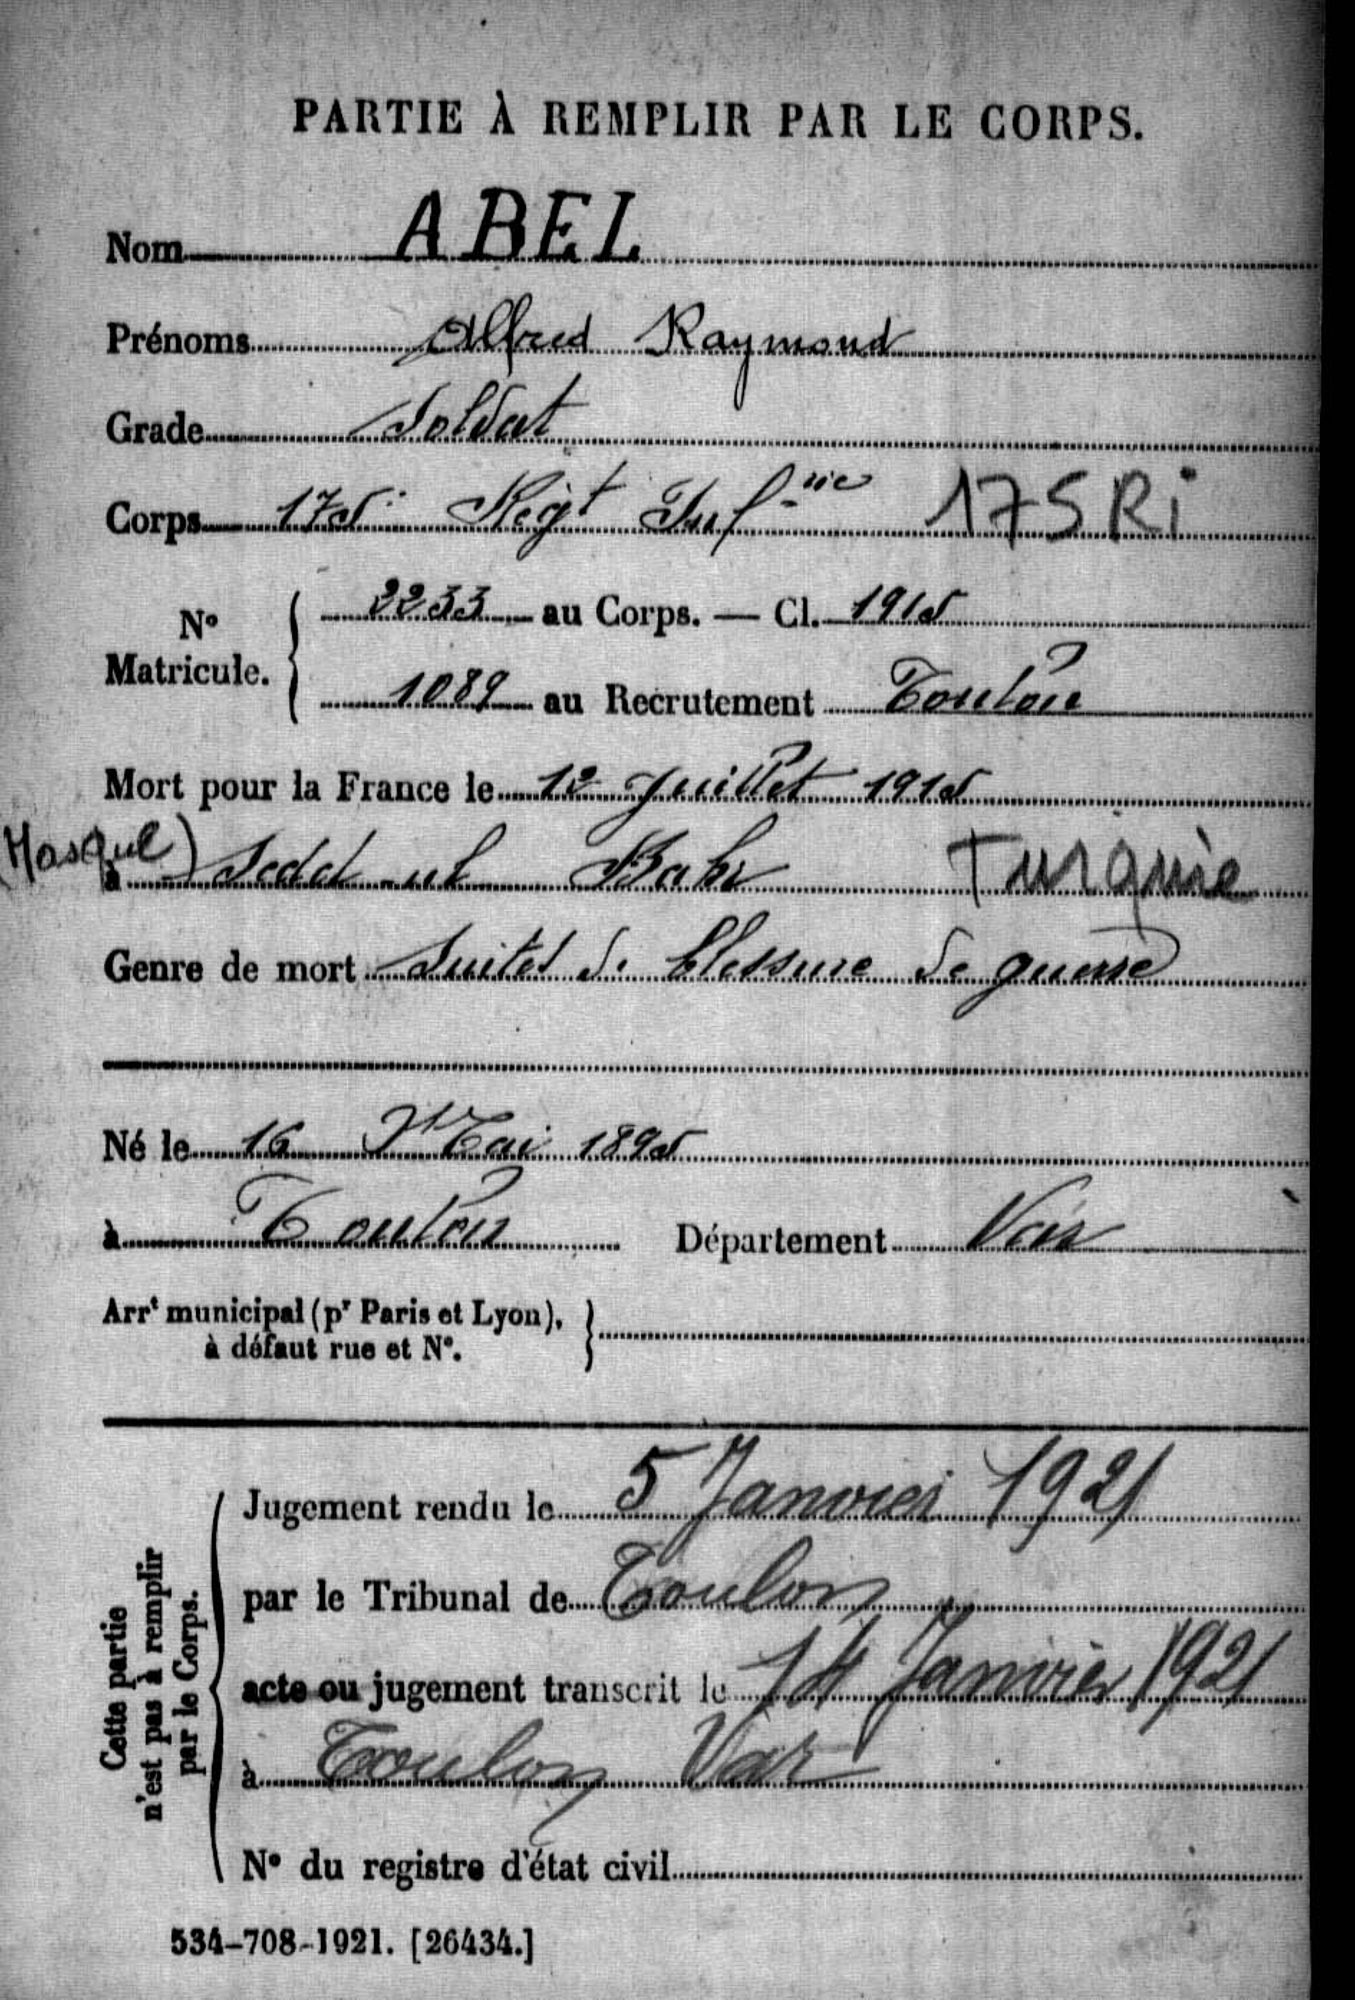 PARTIE À REMPLIR PAR LE CORPS.
Nom ABEL
Prénoms Alfred Raymond
Grade Soldat
Corps 175e Régt Infrie 175 RI
No Matricule. { 2233 au Corps. — Cl. 1915
1089 au Recrutement Toulon
Mort pour la France le 12 Juillet 1915
(Hosqul) à Sedd-ul Bahr Turquie
Genre de mort Suites de blessure de guerre
Né le 16 Mai 1895
à Toulon Département Var
Arrt municipal (pr Paris et Lyon), à défaut rue et No. }
Cette partie n'est pas à remplir par le Corps.
Jugement rendu le 5 Janvier 1921
par le Tribunal de Toulon
acte ou jugement transcrit le 14 Janvier 1921
à Toulon Var
No du registre d'état civil
534-708-1921. [26434.]